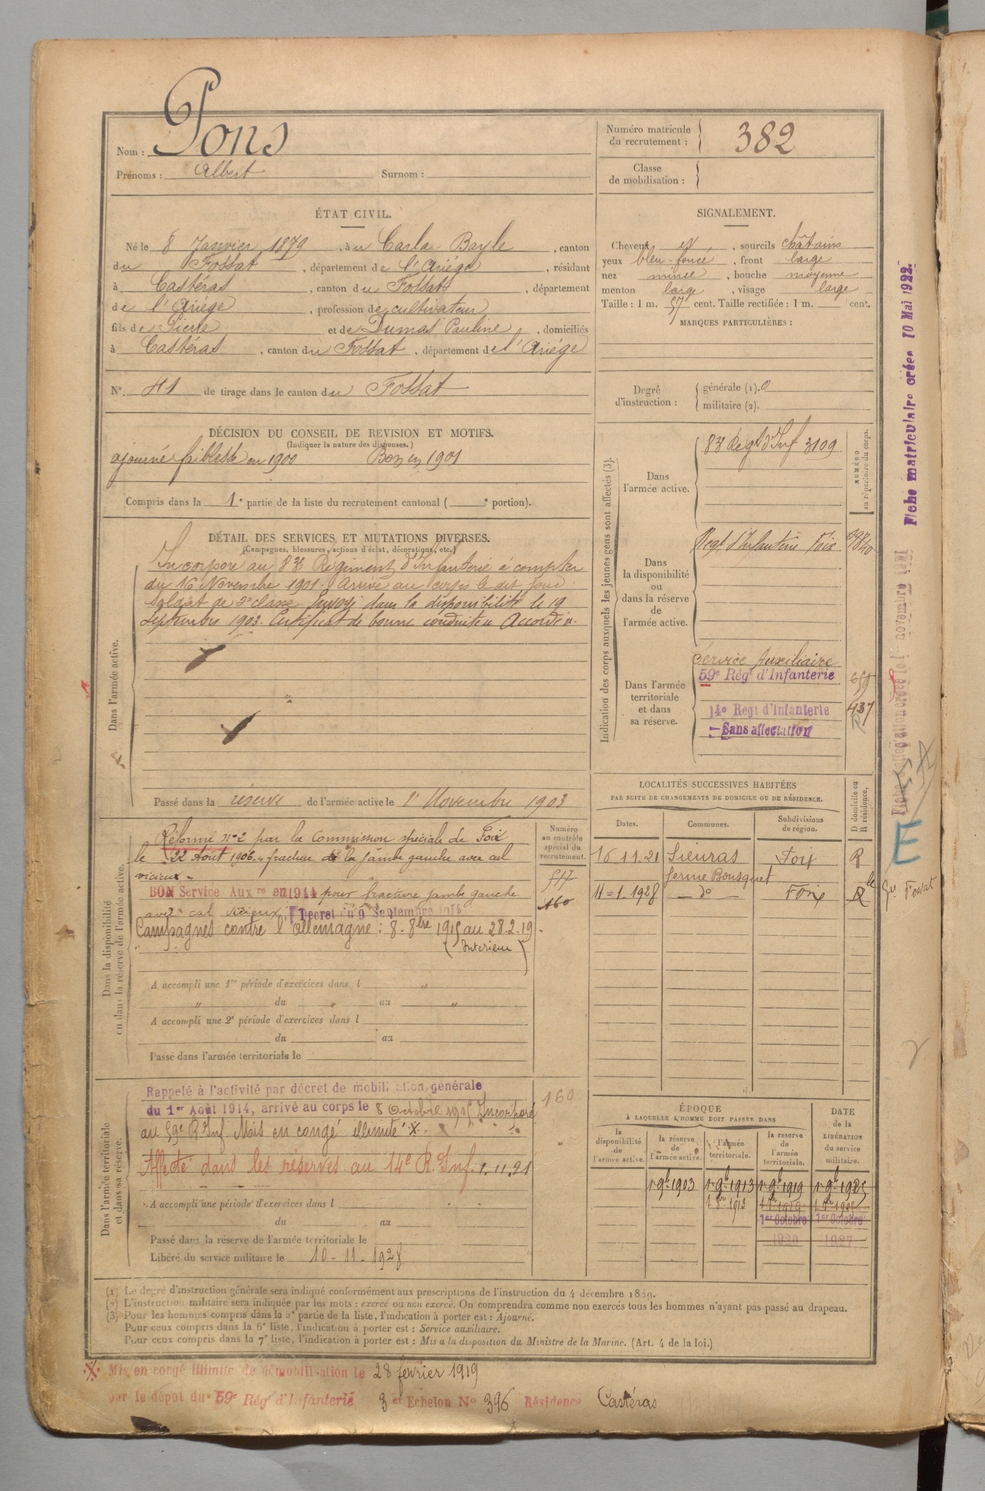 Nom : Pons
Prénoms : Albert Surnom :
Numéro matricule du recrutement : 382
Classe de mobilisation :
ÉTAT CIVIL.
Né le 8 Janvier 1879, à u Carla-Bayle, canton
du Fossat, département de l'Ariège, résidant
à Castéras, canton du Fossat, département
de l'Ariège, profession de cultivateur
fils de Pierre et de Dumas Pauline, domiciliés
à Castéras, canton du Fossat, département de l'Ariège
N°. 41 de tirage dans le canton du Fossat
SIGNALEMENT.
Cheveux et, sourcils châtains
yeux bleu foncé, front large
nez mince, bouche moyenne
menton large, visage large
Taille : 1 m. 57 cent. Taille rectifiée : 1 m. cent.
MARQUES PARTICULIÈRES :
Degré d'instruction : générale (1). 0
militaire (2).
DÉCISION DU CONSEIL DE REVISION ET MOTIFS.
(Indiquer la nature des dispenses.)
ajourné faiblesse en 1900 Bon en 1901
Compris dans la 1e partie de la liste du recrutement cantonal ( e portion).
DÉTAIL DES SERVICES ET MUTATIONS DIVERSES.
(Campagnes, blessures, actions d'éclat, décorations, etc.)
Dans l'armée active.
Incorporé au 83e Régiment d'Infanterie à compter
du 16 Novembre 1901. Arrivé au corps le dit jour
soldat de 2e classe. Envoyé dans la disponibilité le 19
Septembre 1903. Certificat de bonne conduite Accordé.
Passé dans la réserve de l'armée active le 1er Novembre 1903
Indication des corps auxquels les jeunes gens sont affectés (3).
NUMÉRO au répertoire du corps.
Dans l'armée active.
83e Regt d'Inf 3109
Dans la disponibilité ou dans la réserve de l'armée active.
Regt d'Infanterie Foix
Dans l'armée territoriale et dans sa réserve.
Service Auxiliaire
59e Rég d'Infanterie
14e Regt d'Infanterie
Sans affectation
437
LOCALITÉS SUCCESSIVES HABITÉES
PAR SUITE DE CHANGEMENTS DE DOMICILE OU DE RÉSIDENCE.
Dates. Communes. Subdivisions de région. D domicile ou R résidence.
10.11.21 Sieuras Foix R
ferme Bousquet
11-1.1928 do Foix R
Gn Fossat
Dans la disponibilité ou dans la réserve de l'armée active.
Numéro au contrôle spécial du recrutement.
Réformé no 2 par la Commission spéciale de Foix
le 22 Août 1906. fracture de la jambe gauche avec cal
vicieux.
BON Service Auxre en 1914 pour fracture jambe gauche
avec cal vicieux Décret du 9 Septembre
Campagnes contre l'Allemagne : 8. 8bre 1915 au 28.2.19.
(Intérieur)
517
160
A accompli une 1re période d'exercices dans l
du au
A accompli une 2e période d'exercices dans l
du au
Passé dans l'armée territoriale le
Dans l'armée territoriale et dans sa réserve.
Rappelé à l'activité par décret de mobilisation générale
du 1er Août 1914, arrivé au corps le 8 Octobre 1915 Incorporé
au 59e R. Inf. Mis en congé illimité X
Affecté dans les réserves au 14e R. Inf. 1.11.21
160
A accompli une période d'exercices dans l
du au
Passé dans la réserve de l'armée territoriale le
Libéré du service militaire le 10-11-1928
ÉPOQUE
À LAQUELLE L'HOMME DOIT PASSER DANS
la disponibilité de l'armée active. la réserve de l'armée active. l'armée territoriale. la réserve de l'armée territoriale. DATE de la LIBÉRATION du service militaire.
1er 9bre 1903 1er 9bre 1913 1er 9bre 1919 1er 9bre 1925
1er Octobre 1er Octobre
1920 1927
(1) Le degré d'instruction générale sera indiqué conformément aux prescriptions de l'instruction du 4 décembre 1889.
(2) L'instruction militaire sera indiquée par les mots : exercé ou non exercé. On comprendra comme non exercés tous les hommes n'ayant pas passé au drapeau.
(3) Pour les hommes compris dans la 5e partie de la liste, l'indication à porter est : Ajourné.
Pour ceux compris dans la 6e liste, l'indication à porter est : Service auxiliaire.
Pour ceux compris dans la 7e liste, l'indication à porter est : Mis à la disposition du Ministre de la Marine. (Art. 4 de la loi.)
X Mis en congé illimité de démobilisation le 28 février 1919
par le dépôt du 59e Rég d'Infanterie 3e Echelon No 396 Résidence Castéras
Fiche matriculaire créée 10 Mai 1922.